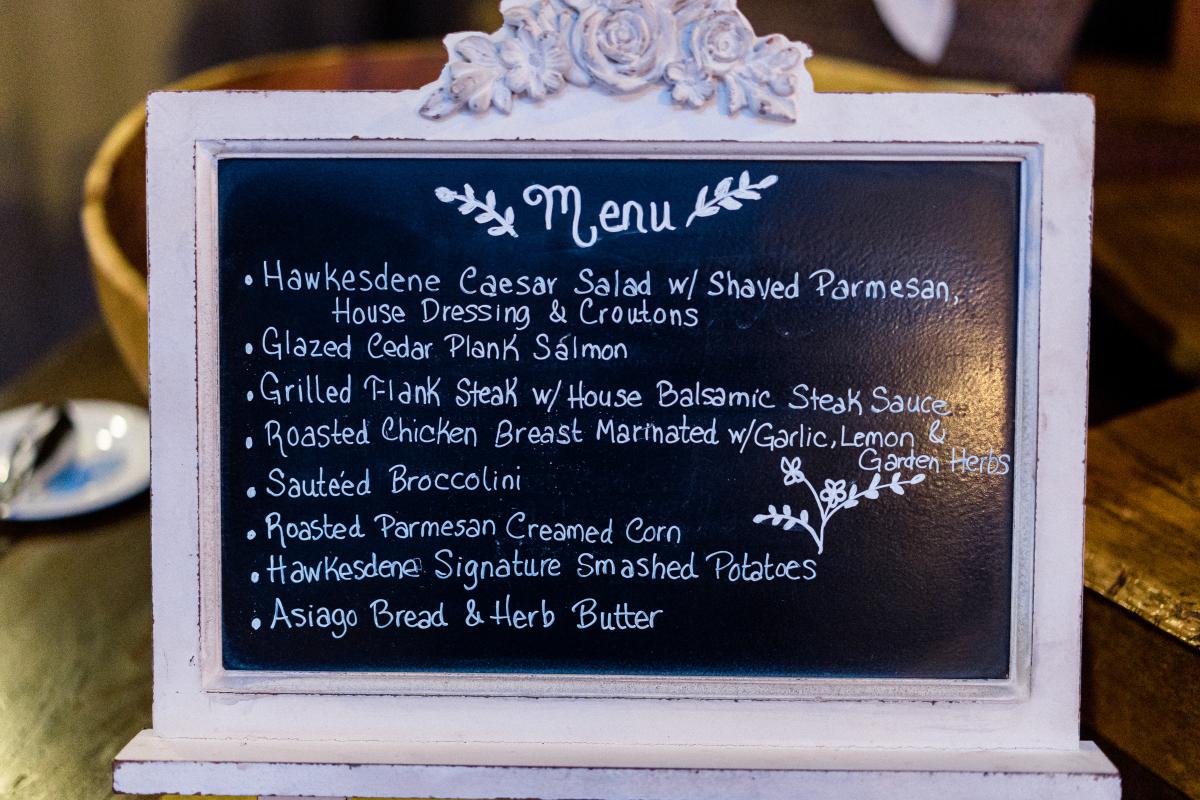 Menu
• Hawkesdene Caesar Salad w/ Shaved Parmesan,
House Dressing & Croutons
• Glazed Cedar Plank Salmon
• Grilled Flank Steak w/ House Balsamic Steak Sauce
• Roasted Chicken Breast Marinated w/ Garlic, Lemon &
Garden Herbs
• Sauteéd Broccolini
• Roasted Parmesan Creamed Corn
• Hawkesdene Signature Smashed Potatoes
• Asiago Bread & Herb Butter